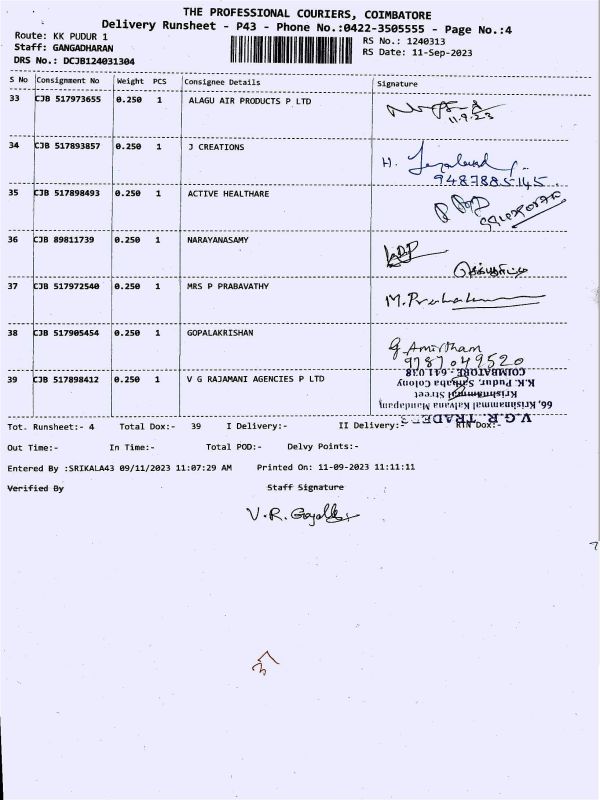 THE PROFESSIONAL COURIERS, COIMBATORE
Delivery Runsheet - P43 - Phone No.:0422-3505555 - Page No.:4
Route: KK PUDUR 1
RS No.: 1240313
Staff: GANGADHARAN
RS Date: 11-Sep-2023
DRS No.: DCJB124031304
S No Consignment No Weight PCS Consignee Details Signature
33 CJB 517973655 0.250 1 ALAGU AIR PRODUCTS P LTD
11.9.23
34 CJB 517893857 0.250 1 J CREATIONS H.
9487885145
35 CJB 517898493 0.250 1 ACTIVE HEALTHARE
36 CJB 89811739 0.250 1 NARAYANASAMY
37 CJB 517972540 0.250 1 MRS P PRABAVATHY
M.
38 CJB 517905454 0.250 1 GOPALAKRISHAN
G Amirtham
9787049520
39 CJB 517898412 0.250 1 V G RAJAMANI AGENCIES P LTD
V.G.R. TRADERS
66, Krisinammal Kalyana Mandapam
Krishnammal Street
K.K. Pudur, Saibaba Colony
COIMBATORE - 641 038
Tot. Runsheet:- 4 Total Dox:- 39 I Delivery:- II Delivery:- RTN Dox:-
Out Time:- In Time:- Total POD:- Delvy Points:-
Entered By :SRIKALA43 09/11/2023 11:07:29 AM Printed On: 11-09-2023 11:11:11
Verified By Staff Signature
V.R.